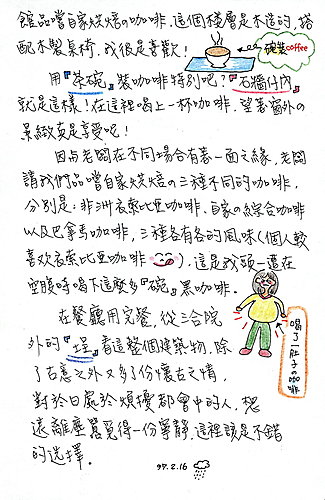 館品嚐自家烘焙の咖啡，這個樓層是木造的，搭
配木製桌椅，我很是喜歡！
碗裝coffee
用『茶碗』裝咖啡特別吧？『石牆仔內』
就是這樣！在這裡喝上一杯咖啡，望著窗外の
景緻真是享受呢！
因與老闆在不同場合有著一面之緣，老闆
請我們品嚐自家烘焙の三種不同的咖啡，
分別是：非洲衣索比亞咖啡、自家の綜合咖啡
以及巴拿馬咖啡，三種各有各的風味（個人較
喜歡衣索比亞咖啡），這是我頭一遭在
空腹時喝下這麼多『碗』黑咖啡。
在餐廳用完餐，從三合院
外的『埕』看這整個建築物，除
了古意之外又多了份懷古之情，
對於日處於煩擾都會中的人，想
遠離塵囂覓得一份寧靜，這裡該是不錯
的選擇。
喝了一肚子の咖啡
97.2.16